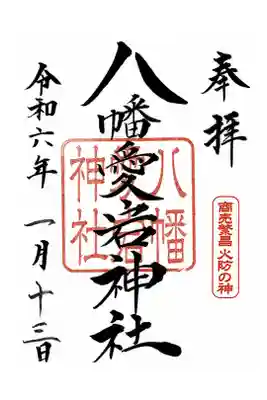 奉拝
商売繁昌 火防の神
八幡愛宕神社
八幡
神社
令和六年 一月十三日